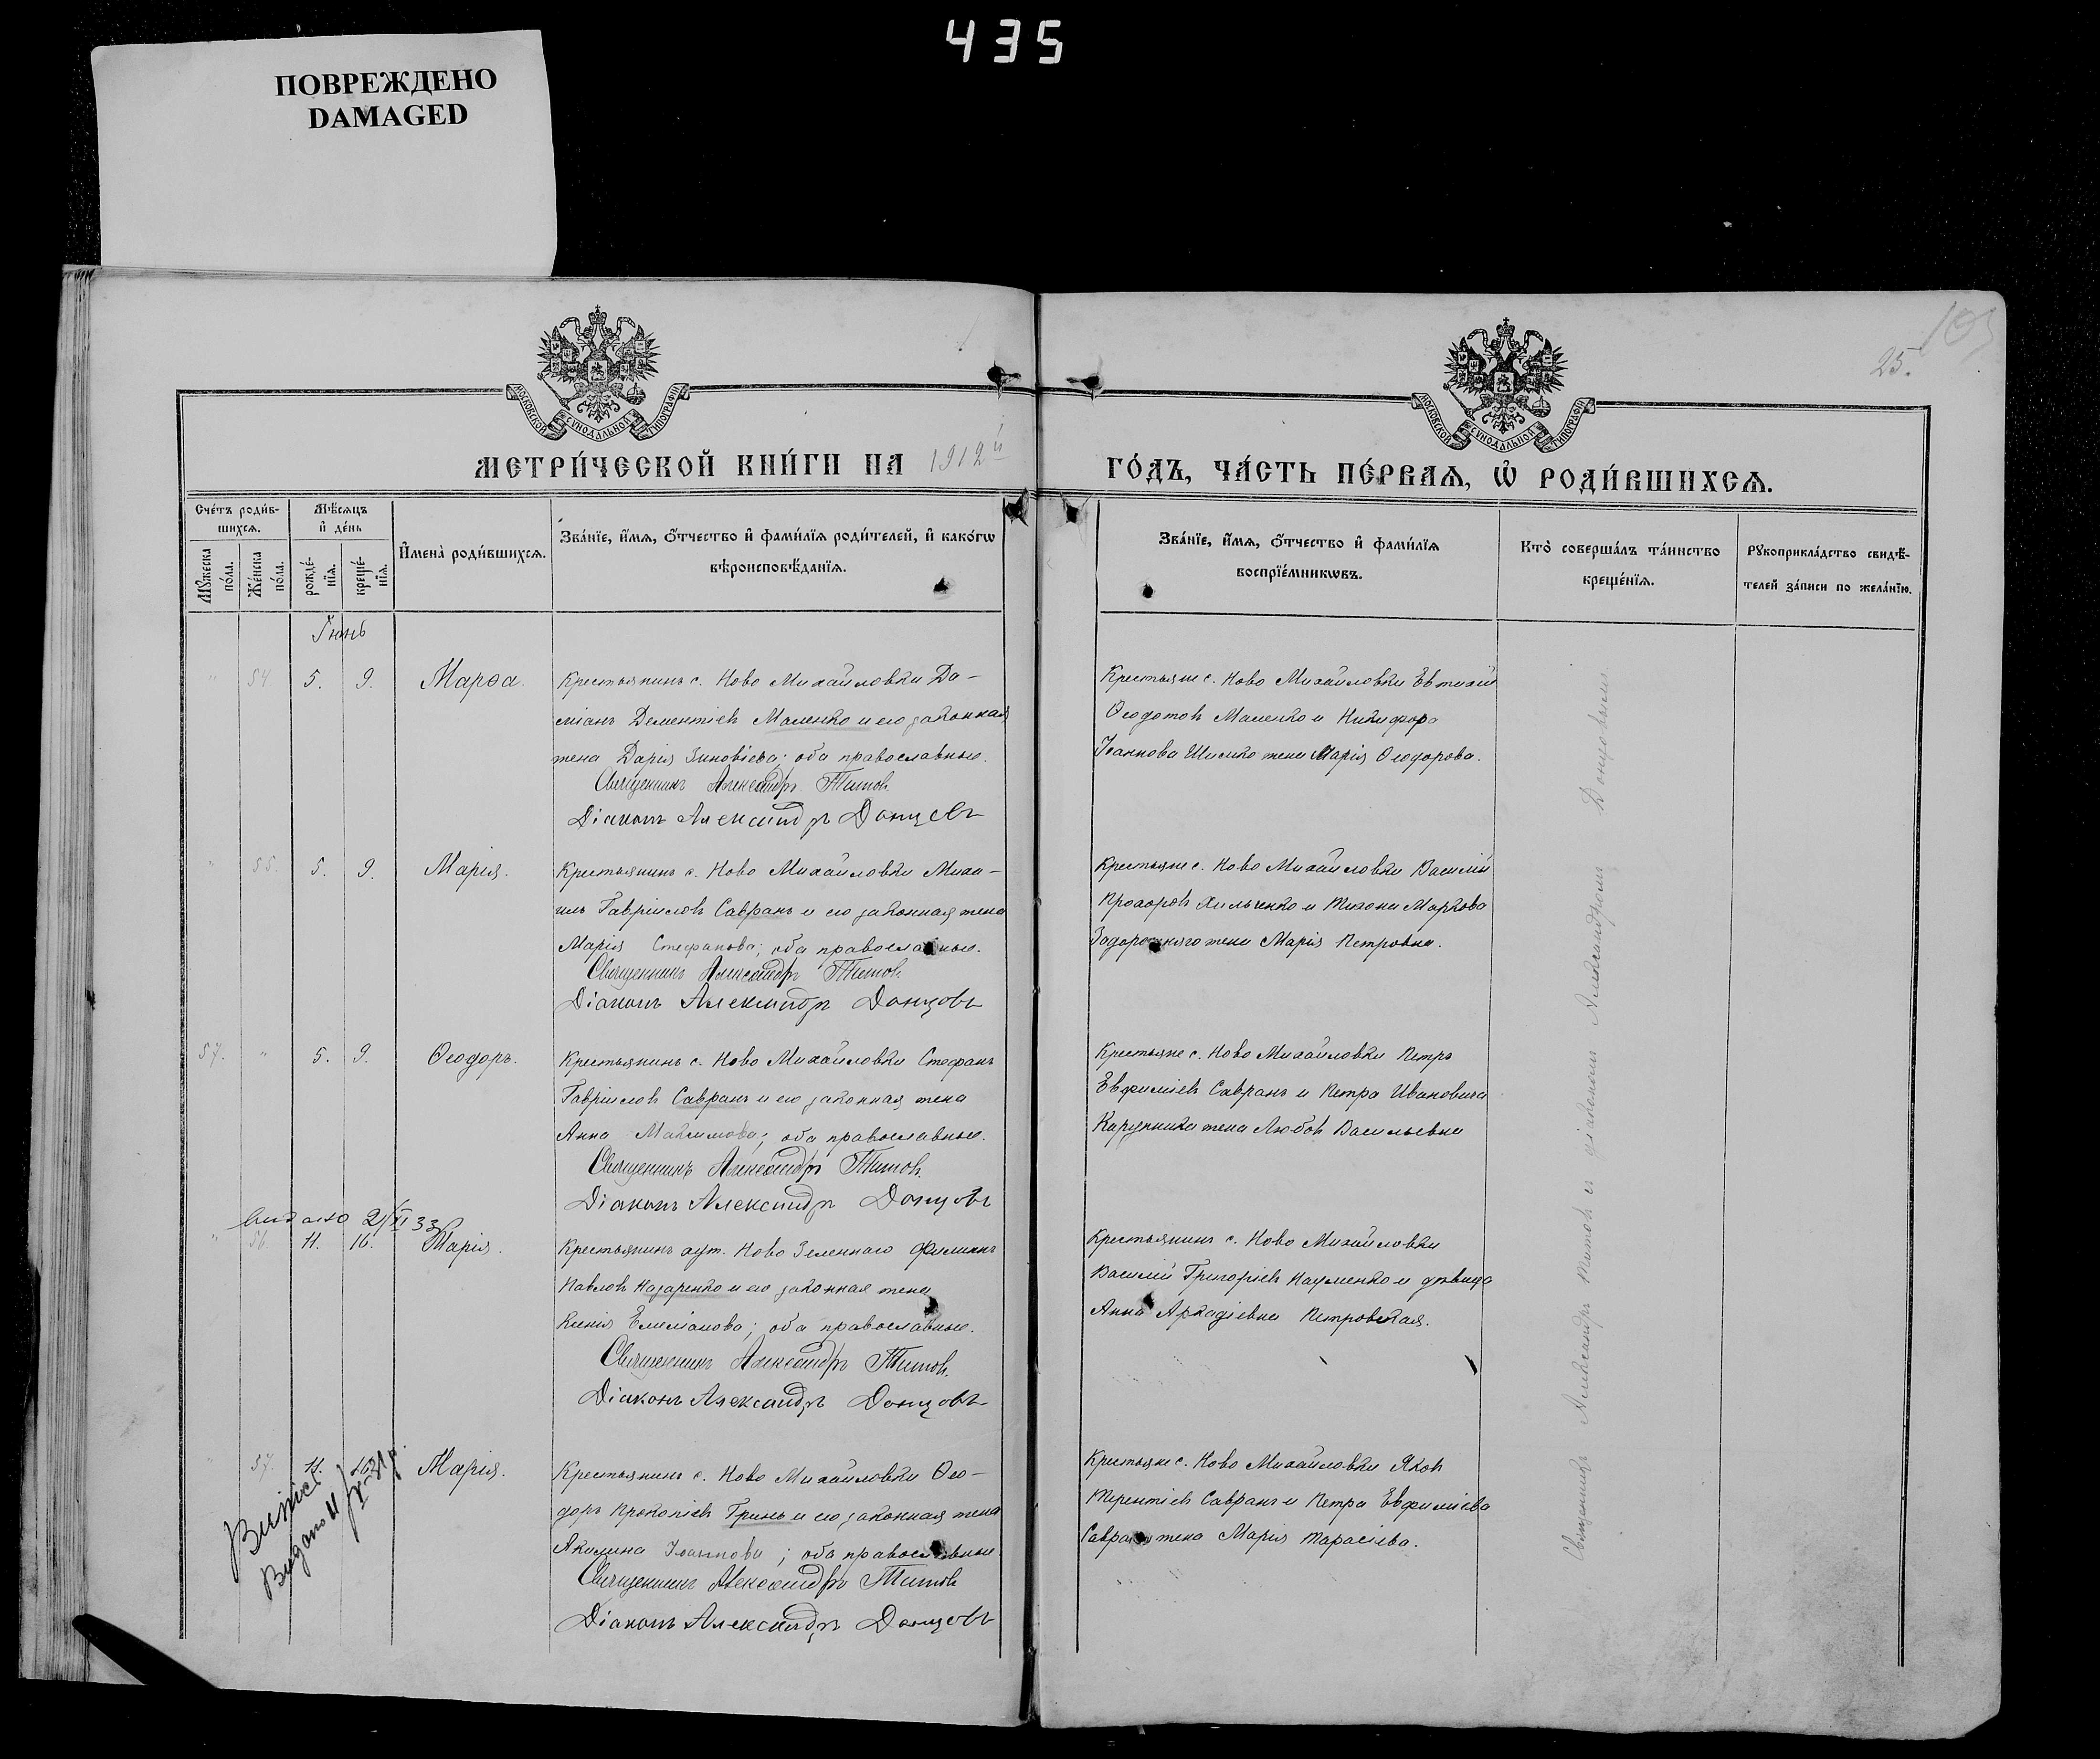 435
ПОВРЕЖДЕНО
DAMAGED
25.
МОСКОВСКОЙ СѴНОДАЛЬНОЙ ТИПОГРАФІИ
МОСКОВСКОЙ СѴНОДАЛЬНОЙ ТИПОГРАФІИ
МЕТРИ́ЧЕСКОЙ КНИ́ГИ НА 1912й
ГО́ДЪ, ЧА́СТЬ ПЕ́РВАѦ, Ѡ҆ РОДИ́ВШИХСѦ.
Сче́тъ роди́в-
шихсѧ.
Мѣ́сѧцъ
и҆ де́нь
Мꙋ́жеска
по́ла.
Же́нска
по́ла.
рожде́-
нїѧ.
креще́-
нїѧ.
И҆мена̀ роди́вшихсѧ.
Зва́нїе, и҆́мѧ, ѻ҆́тчество и҆ фами́лїѧ роди́телей, и҆ како́гѡ
вѣроисповѣ́данїѧ.
Зва́нїе, и҆́мѧ, ѻ҆́тчество и҆ фами́лїѧ
воспрїе́мникѡвъ.
Кто̀ соверша́лъ та́инство
креще́нїѧ.
Рꙋкоприкла́дство свидѣ́-
телей за́писи по жела́нїю.
Іюнь
" 54 5. 9. Марѳа.
Крестьянинъ с. Ново Михайловки Да-
міанъ Дементіевъ Маленко и его законная
жена Дарія Зиновіева; оба православные.
Священникъ Александръ Титовъ
Діаконъ Александръ Донцовъ
Крестьяне с. Ново Михайловки Евтихій
Ѳеодотовъ Маленко и Никифора
Іоаннова Шило жена Марія Ѳеодорова.
" 55. 5. 9. Марія.
Крестьянинъ с. Ново Михайловки Миха-
илъ Гавріиловъ Савранъ и его законная жена
Марія Стефанова; оба православные.
Священникъ Александръ Титовъ
Діаконъ Александръ Донцовъ
Крестьяне с. Ново Михайловки Василій
Прохоровъ Хильченко и Тихона Маркова
Задорожняго жена Марія Петровна.
57. " 5. 9. Ѳеодоръ.
Крестьянинъ с. Ново Михайловки Стефанъ
Гавріиловъ Савранъ и его законная жена
Анна Максимова; оба православные.
Священникъ Александръ Титовъ
Діаконъ Александръ Донцовъ
Крестьяне с. Ново Михайловки Петръ
Евфиміевъ Савранъ и Петра Ивановича
жена Любовь Васильевна
видано 2/XI 33
" 56. 11. 16. Марія.
Крестьянинъ хут. Ново Зеленнаго
Павловъ Назаренко и его законная жена
Ксенія Емиліанова; оба православные.
Священникъ Александръ Титовъ
Діаконъ Александръ Донцовъ
Крестьянинъ с. Ново Михайловки
Василій Григоріевъ Науменко и дѣвица
Анна Аркадіевна Петровская.
" 57. 11. 16. Марія.
Видано 11/V 31 р.
Крестьянинъ с. Ново Михайловки Ѳео-
доръ Прокопіевъ Гринь и его законная жена
Акилина Іоаннова; оба православные
Священникъ Александръ Титовъ
Діаконъ Александръ Донцовъ
Крестьяне с. Ново Михайловки Яковъ
Терентіевъ Савранъ и Петра Евфиміева
Саврана жена Марія Тарасіева.
Священникъ Александръ Титовъ съ діакономъ Александромъ Донцовымъ